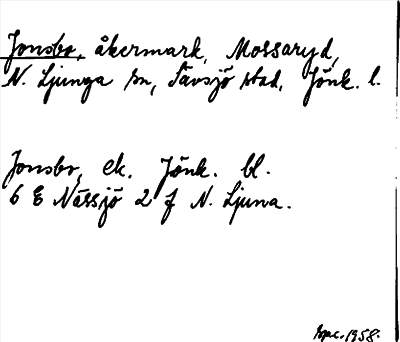 Jonsbo, åkermark, Mossaryd,
N. Ljunga sn, Sävsjö stad, Jönk. l.
Jonsbo, ek. Jönk. bl.
6 E Nässjö 2 f N. Ljuna.
1958.